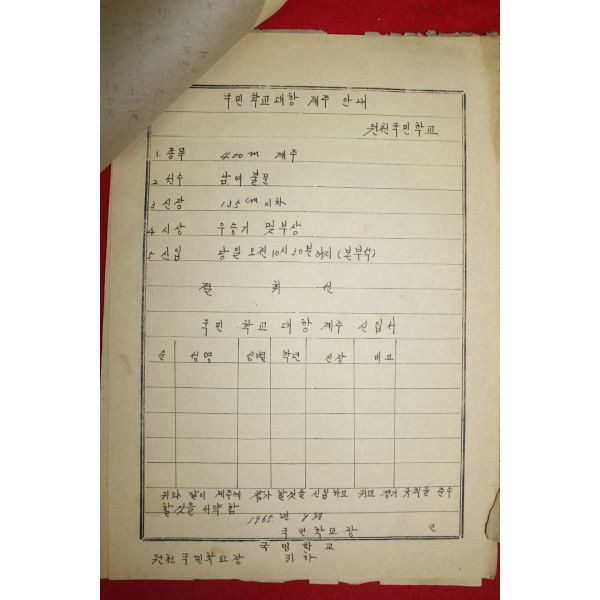 국민학교대항 계주 안내
원천국민학교
1. 종목 400m 계주
2. 선수 남여 불문
3. 신장 135cm 이하
4. 시상 우승기 및 부상
5. 신입 당일 오전 10시 30분까지 (본부석)
절 취 선
국민 학교 대항 계주 신입서
순 성명 성별 학년 신장 비고
위와 같이 계주에 참가 할것을 신입하고 귀교 경기 규칙을 준수
할것을 서약함
1965년 9월
국민학교장 인
국민학교
원천국민학교장 귀하